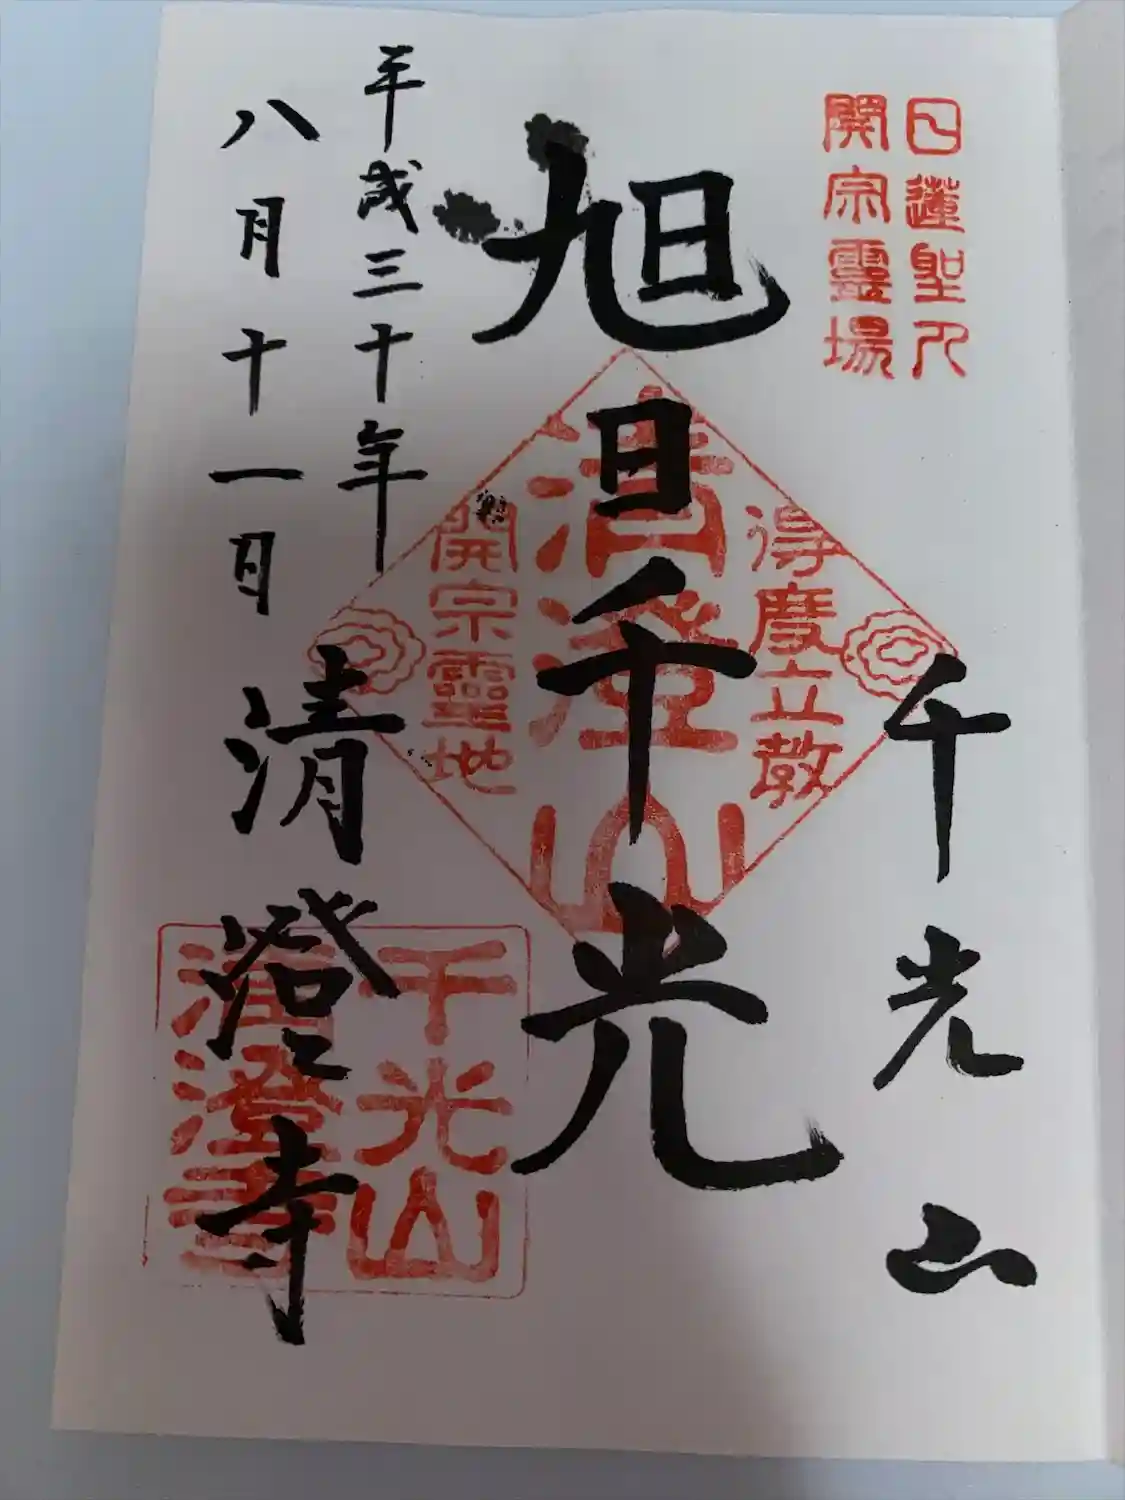 日蓮聖人
開宗靈場
千光山
旭日千光
得度立教
清澄山
開宗靈地
平成三十年
八月十一日
清澄寺
千光山
清澄寺